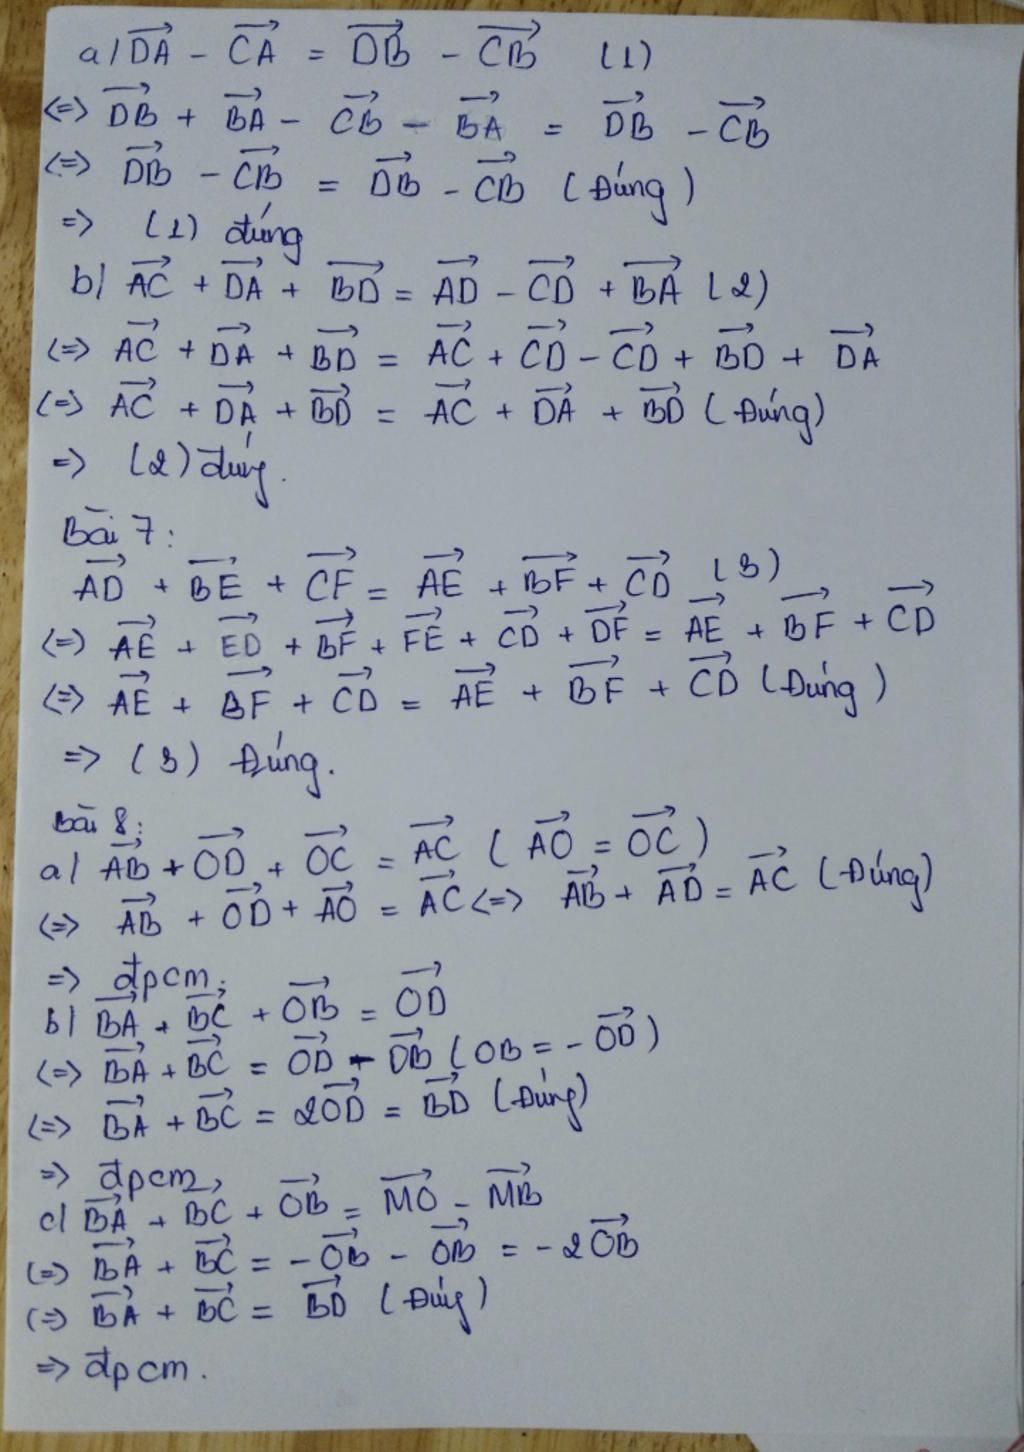 a/ $\overrightarrow{DA} - \overrightarrow{CA} = \overrightarrow{DB} - \overrightarrow{CB}$ (1)
<=> $\overrightarrow{DB} + \overrightarrow{BA} - \overrightarrow{CB} - \overrightarrow{BA} = \overrightarrow{DB} - \overrightarrow{CB}$
<=> $\overrightarrow{DB} - \overrightarrow{CB} = \overrightarrow{DB} - \overrightarrow{CB}$ (Đúng)
=> (1) đúng
b/ $\overrightarrow{AC} + \overrightarrow{DA} + \overrightarrow{BD} = \overrightarrow{AD} - \overrightarrow{CD} + \overrightarrow{BA}$ (2)
<=> $\overrightarrow{AC} + \overrightarrow{DA} + \overrightarrow{BD} = \overrightarrow{AC} + \overrightarrow{CD} - \overrightarrow{CD} + \overrightarrow{BD} + \overrightarrow{DA}$
<=> $\overrightarrow{AC} + \overrightarrow{DA} + \overrightarrow{BD} = \overrightarrow{AC} + \overrightarrow{DA} + \overrightarrow{BD}$ (Đúng)
=> (2) đúng.
Bài 7:
$\overrightarrow{AD} + \overrightarrow{BE} + \overrightarrow{CF} = \overrightarrow{AE} + \overrightarrow{BF} + \overrightarrow{CD}$ (3)
<=> $\overrightarrow{AE} + \overrightarrow{ED} + \overrightarrow{BF} + \overrightarrow{FE} + \overrightarrow{CD} + \overrightarrow{DF} = \overrightarrow{AE} + \overrightarrow{BF} + \overrightarrow{CD}$
<=> $\overrightarrow{AE} + \overrightarrow{BF} + \overrightarrow{CD} = \overrightarrow{AE} + \overrightarrow{BF} + \overrightarrow{CD}$ (Đúng)
=> (3) Đúng.
Bài 8:
a/ $\overrightarrow{AB} + \overrightarrow{OD} + \overrightarrow{OC} = \overrightarrow{AC}$ ($\overrightarrow{AO} = \overrightarrow{OC}$)
<=> $\overrightarrow{AB} + \overrightarrow{OD} + \overrightarrow{AO} = \overrightarrow{AC}$ <=> $\overrightarrow{AB} + \overrightarrow{AD} = \overrightarrow{AC}$ (Đúng)
=> đpcm.
b/ $\overrightarrow{BA} + \overrightarrow{BC} + \overrightarrow{OB} = \overrightarrow{OD}$
<=> $\overrightarrow{BA} + \overrightarrow{BC} = \overrightarrow{OD} - \overrightarrow{OB}$ ($OB = -\overrightarrow{OD}$)
<=> $\overrightarrow{BA} + \overrightarrow{BC} = 2\overrightarrow{OD} = \overrightarrow{BD}$ (Đúng)
=> đpcm,
c/ $\overrightarrow{BA} + \overrightarrow{BC} + \overrightarrow{OB} = \overrightarrow{MO} - \overrightarrow{MB}$
<=> $\overrightarrow{BA} + \overrightarrow{BC} = -\overrightarrow{OB} - \overrightarrow{OB} = -2\overrightarrow{OB}$
<=> $\overrightarrow{BA} + \overrightarrow{BC} = \overrightarrow{BD}$ (Đúng)
=> đpcm.